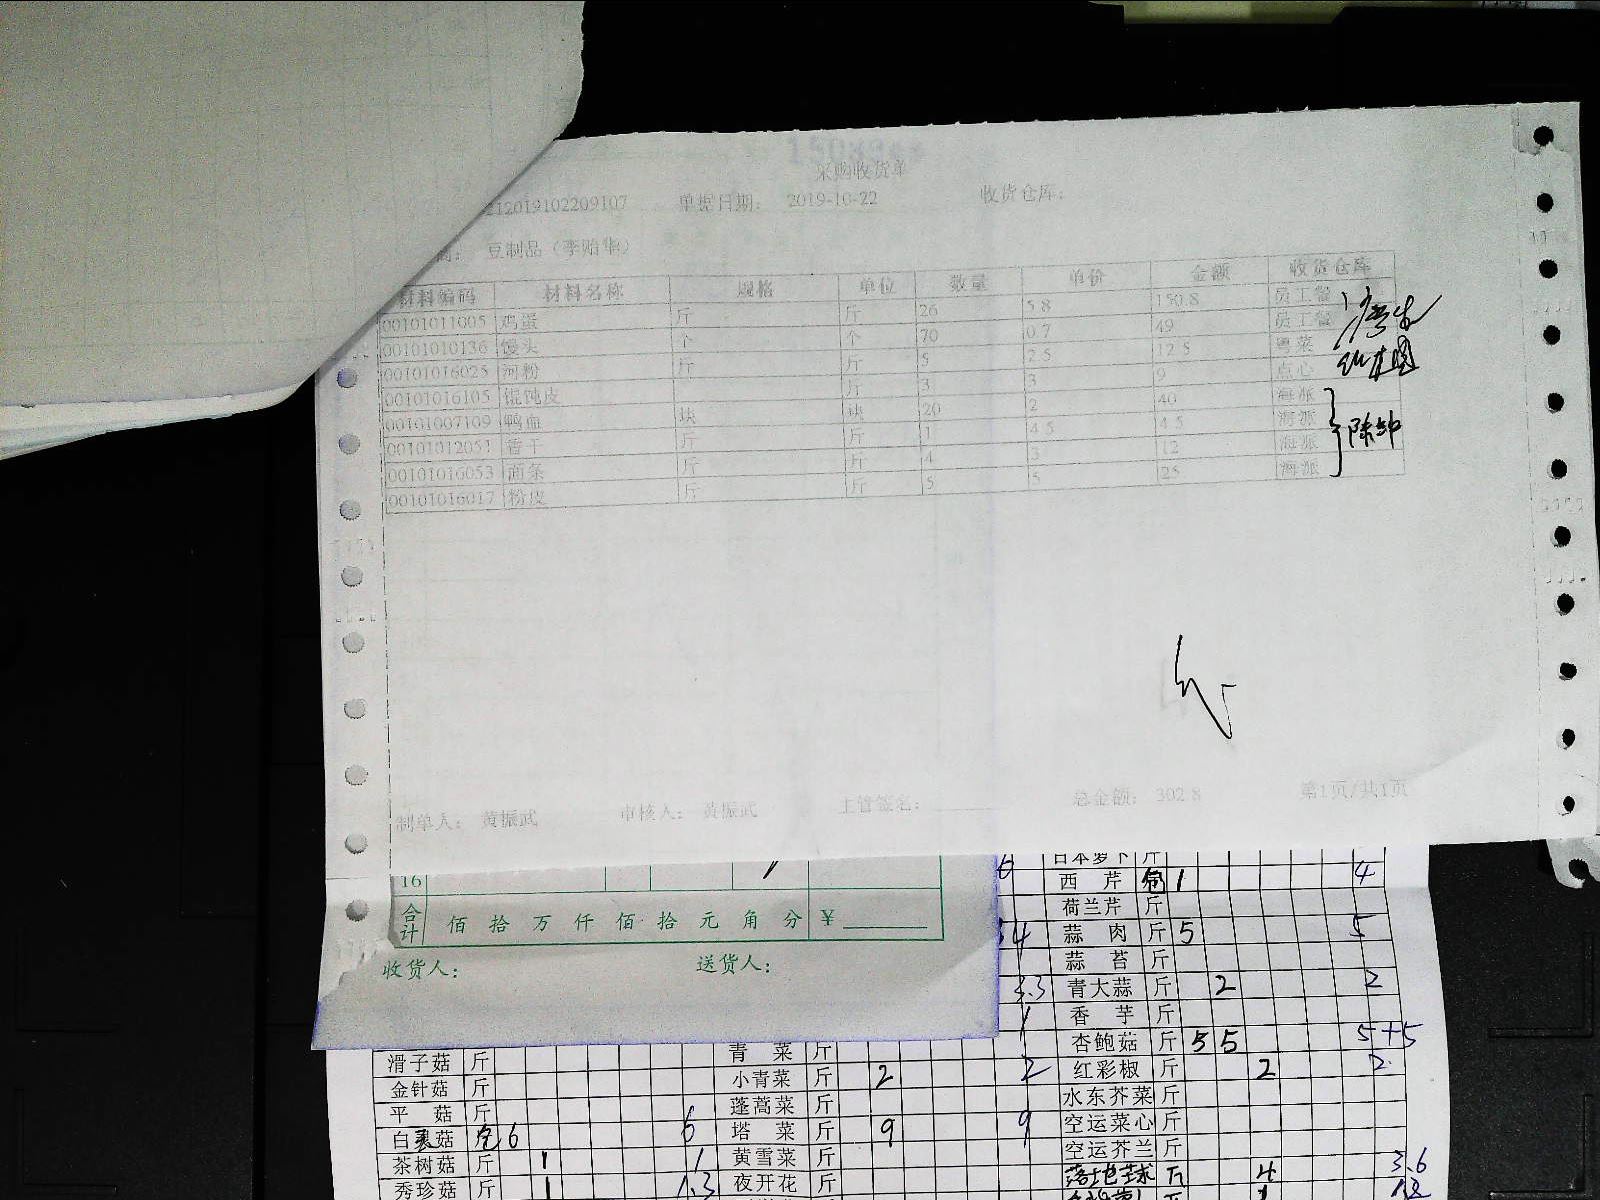 采购收货单
212019102209107 单据日期： 2019-10-22 收货仓库：
商： 豆制品（李贻华）
材料编码 材料名称 规格 单位 数量 单价 金额 收货仓库
00101011005 鸡蛋 斤 斤 26 5.8 150.8 员工餐
00101010136 馒头 个 个 70 0.7 49 员工餐
00101016025 河粉 斤 斤 5 2.5 12.5 粤菜
00101016105 馄饨皮 斤 3 3 9 点心
00101007109 鸭血 块 块 20 2 40 海派
00101012051 香干 斤 斤 1 4.5 4.5 海派
00101016053 面条 斤 斤 4 3 12 海派
00101016017 粉皮 斤 斤 5 5 25 海派
制单人： 黄振武 审核人： 黄振武 主管签名： 总金额： 302.8 第1页/共1页
16
合计 佰 拾 万 仟 佰 拾 元 角 分 ¥
收货人： 送货人：
日本萝卜 斤
西芹 包 1 4
荷兰芹 斤
蒜肉 斤 5 5
蒜苔 斤
青大蒜 斤 2 2
香芋 斤
杏鲍菇 斤 5 5 5+5
滑子菇 斤 青菜 斤 红彩椒 斤 2 2
金针菇 斤 小青菜 斤 2 2 水东芥菜 斤
平菇 斤 蓬蒿菜 斤 空运菜心 斤
白菇 6 6 塔菜 斤 9 9 空运芥兰 斤
茶树菇 斤 1 1 黄雪菜 斤 落地球 斤 4 3.6
秀珍菇 斤 1 1.3 夜开花 斤